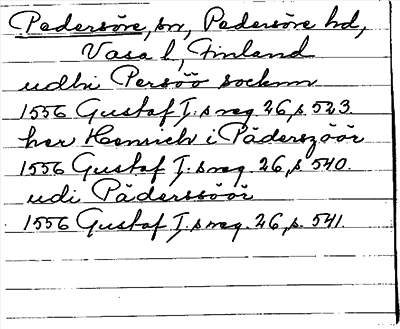 Pedersöre, sn, Pedersöre hd,
Vasa l, Finland
udhi Persöö socknn
1556 Gustaf I.s reg. 26, s. 523.
her Henrich i Päderszöör
1556 Gustaf I.s reg. 26, s. 540.
udi Päderssöör
1556 Gustaf I.s reg. 26, s. 541.